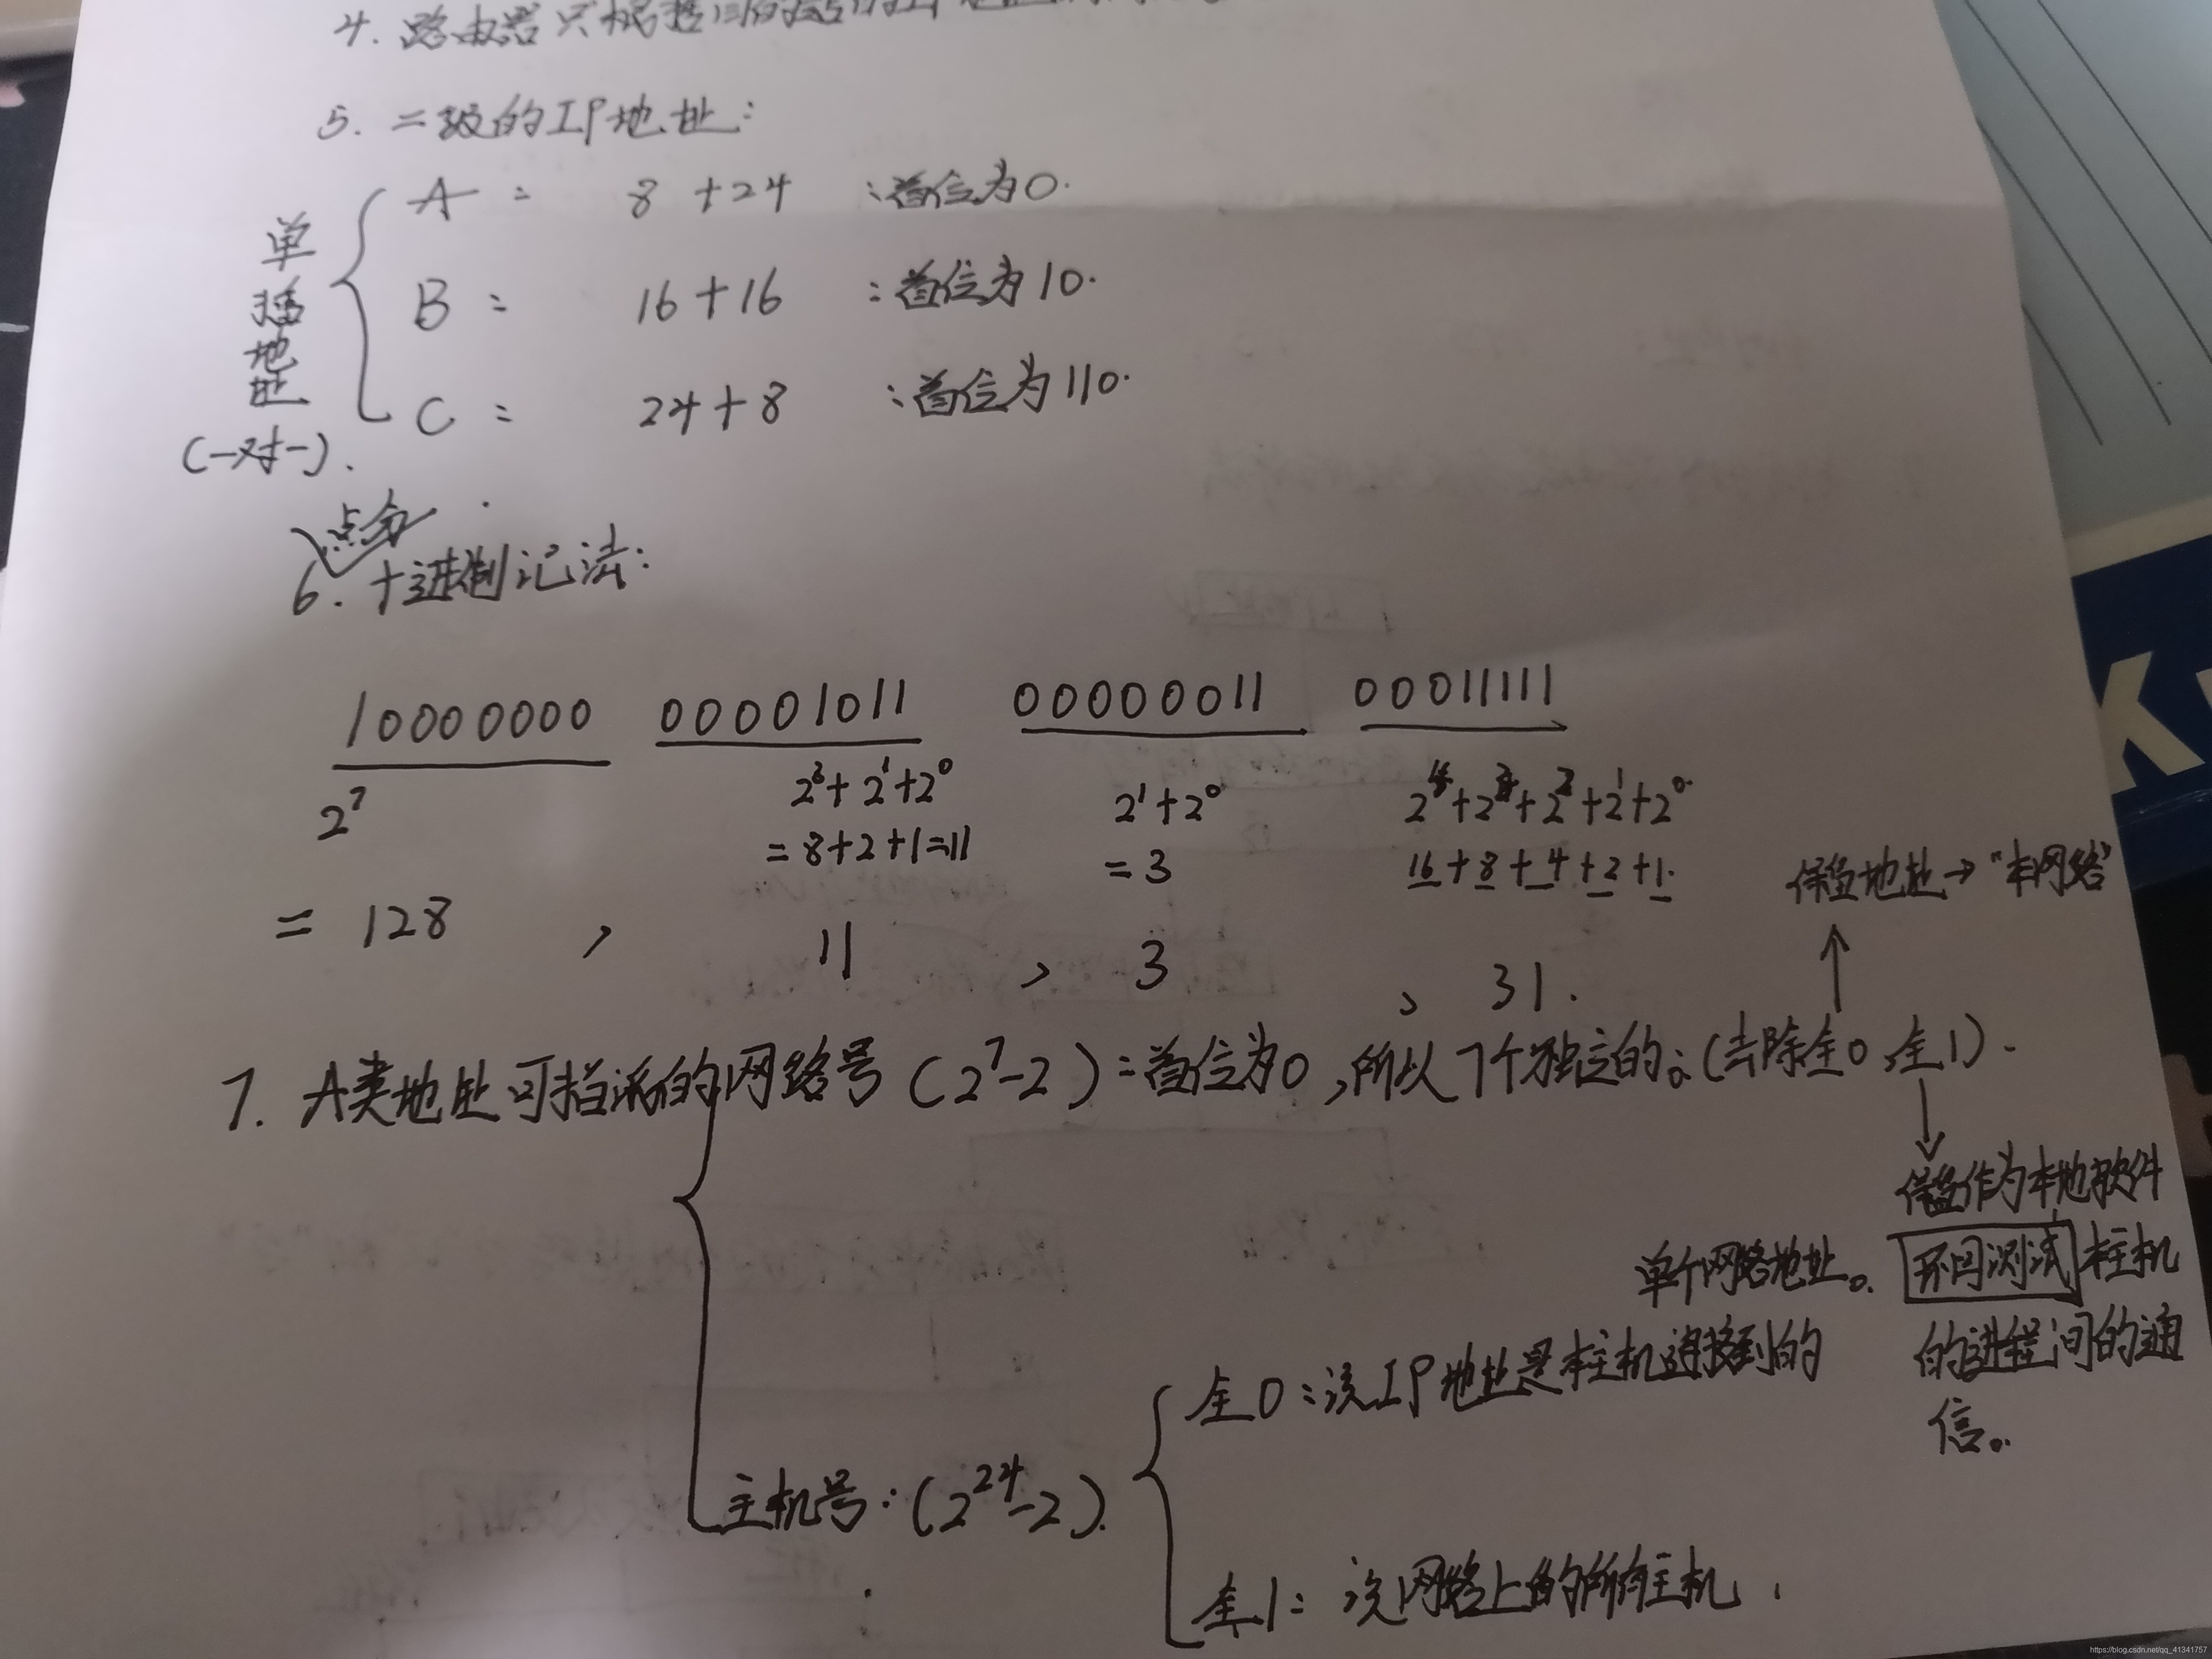 4. 路由器只根据
5. 二级的IP地址:
单播地址
(一对一).
A: 8+24 :首位为0.
B: 16+16 :首位为10.
C: 24+8 :首位为110.
点分
6. 十进制记法:
10000000 00001011 00000011 00011111
2^7 2^3+2^1+2^0 2^1+2^0 2^4+2^3+2^2+2^1+2^0.
=8+2+1=11 =3 16+8+4+2+1.
= 128 , 11 , 3 , 31.
保留地址→"本网络"
7. A类地址可指派的网络号(2^7-2):首位为0,所以7个独立的。(去除全0,全1).
保留作为本地软件
环回测试本主机
的进程间的通
信。
主机号:(2^24-2).
全0:该IP地址是本主机连接到的
单个网络地址。
全1:该网络上的所有主机.
https://blog.csdn.net/qq_41341757